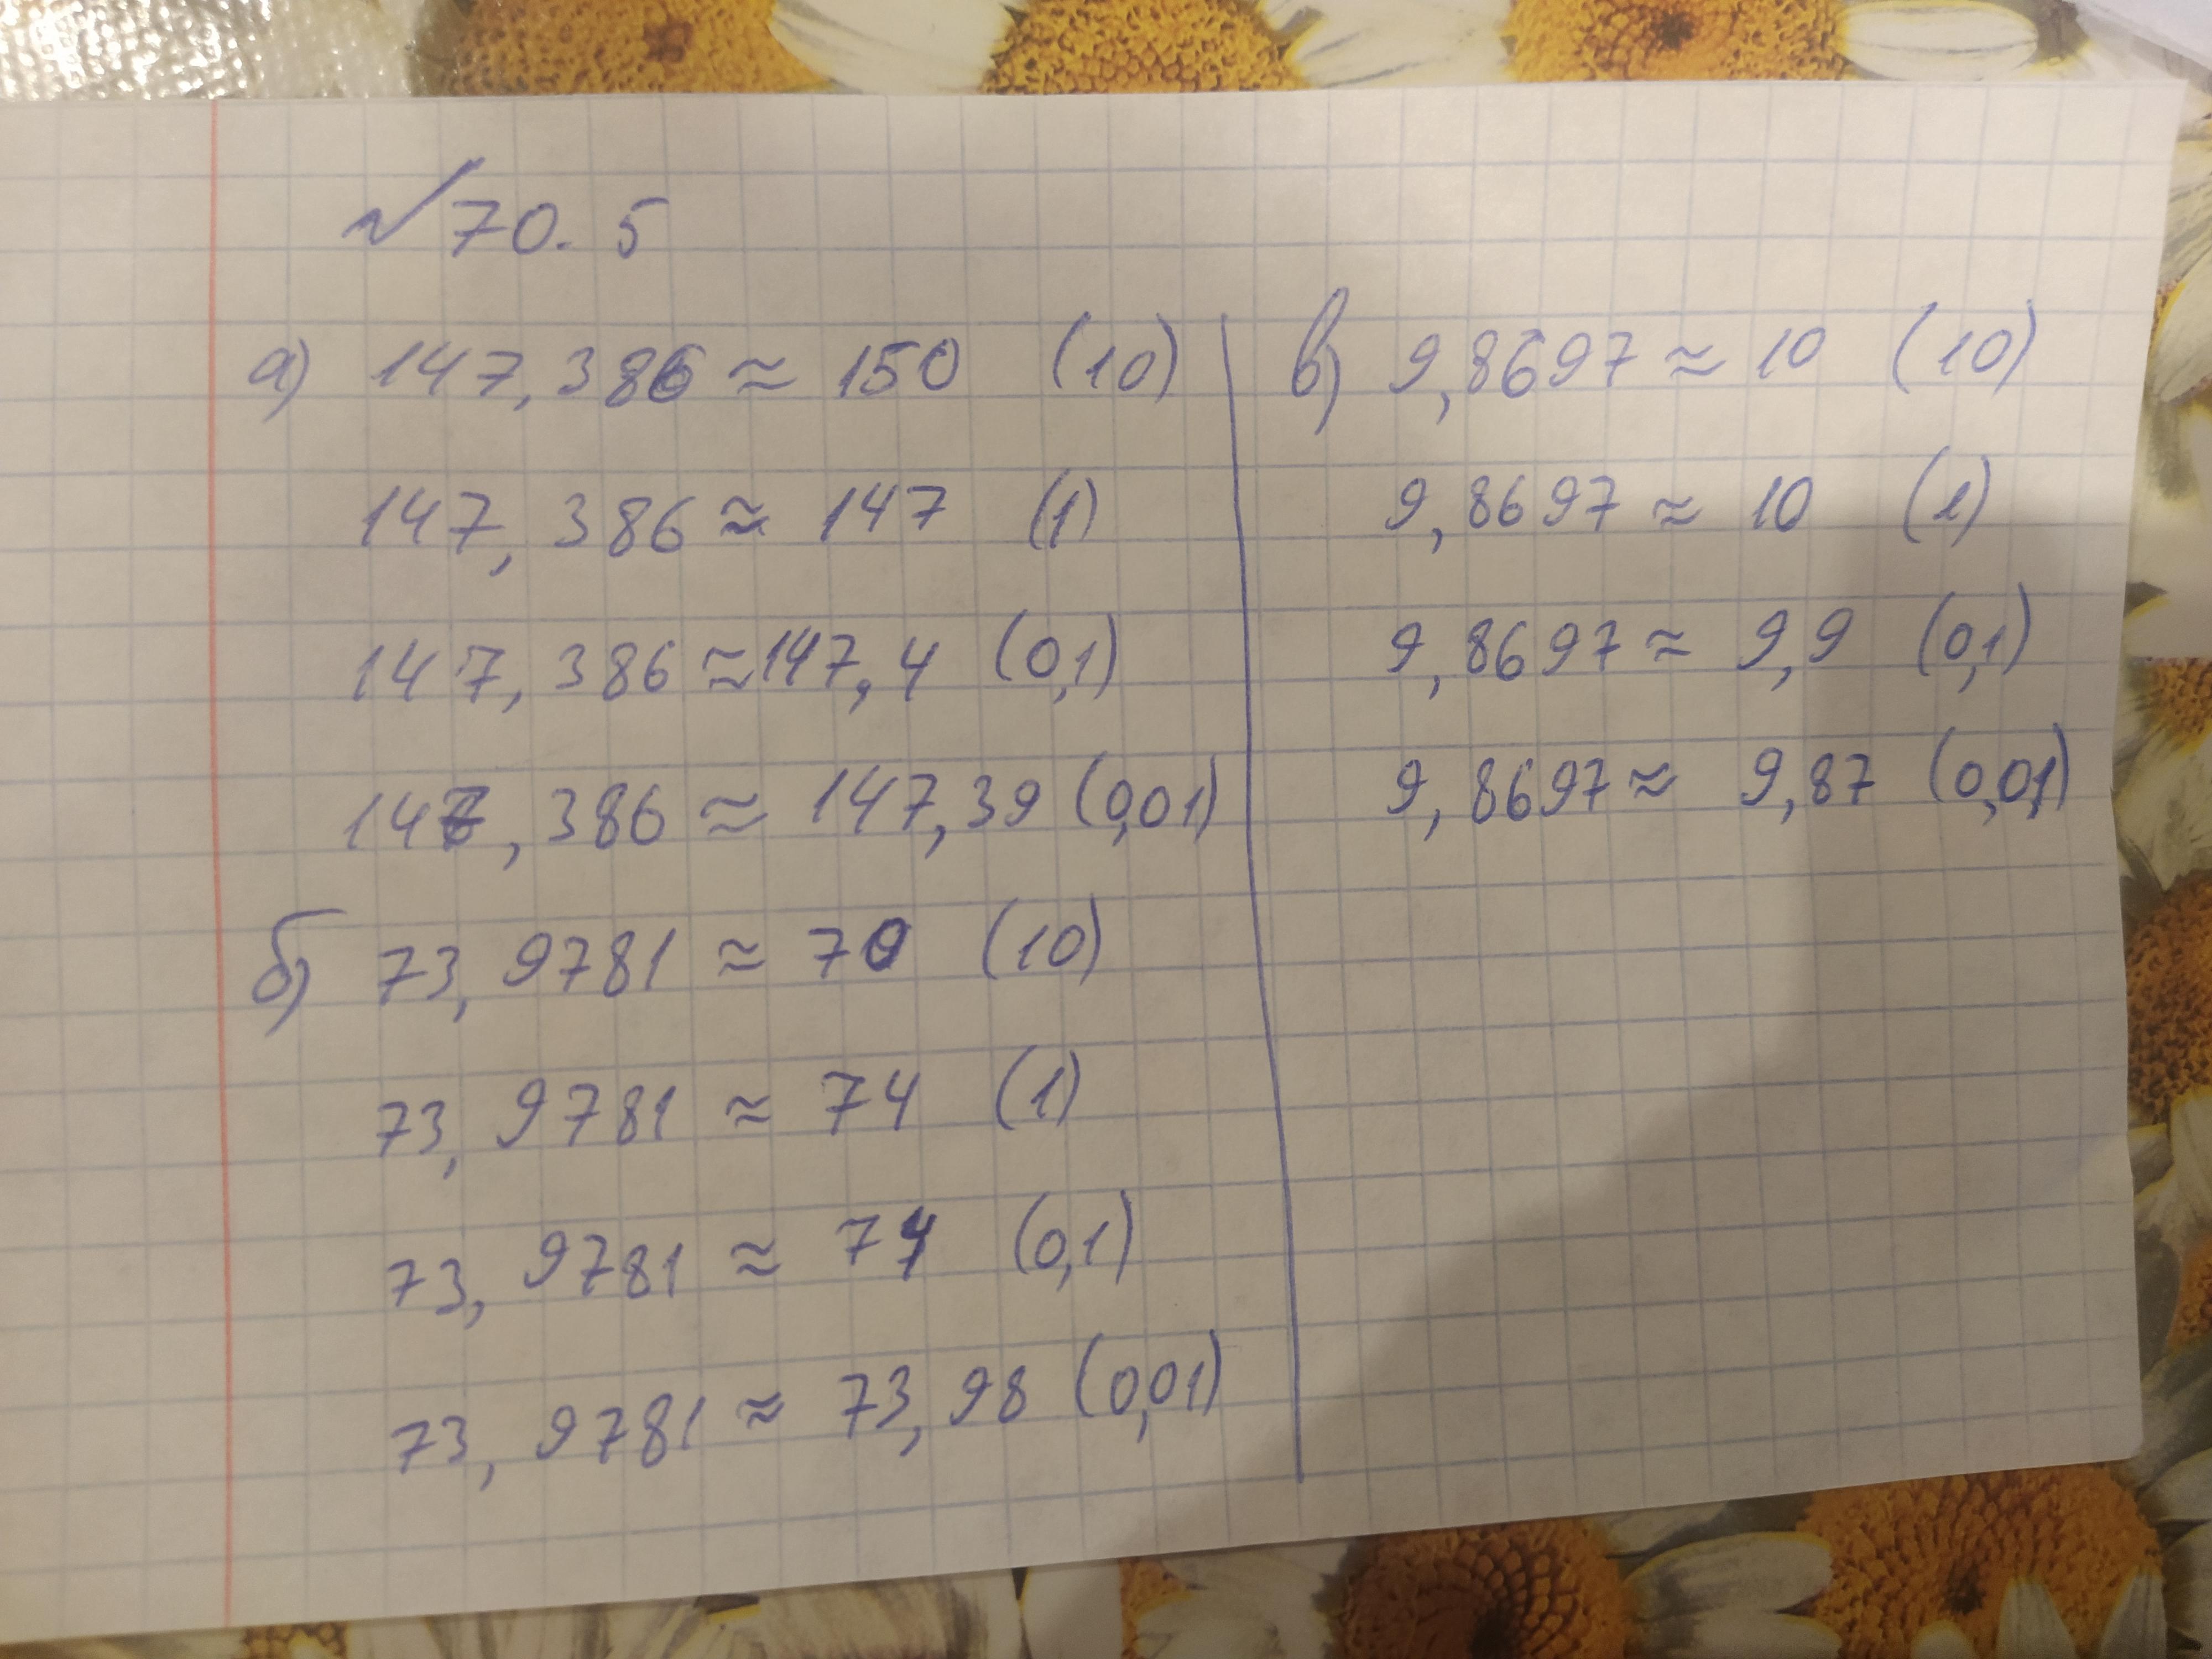 № 70. 5
а) 147,386 ≈ 150 (10)
147,386 ≈ 147 (1)
147,386 ≈ 147,4 (0,1)
147,386 ≈ 147,39 (0,01)
б) 73,9781 ≈ 70 (10)
73,9781 ≈ 74 (1)
73,9781 ≈ 74 (0,1)
73,9781 ≈ 73,98 (0,01)
в) 9,8697 ≈ 10 (10)
9,8697 ≈ 10 (1)
9,8697 ≈ 9,9 (0,1)
9,8697 ≈ 9,87 (0,01)